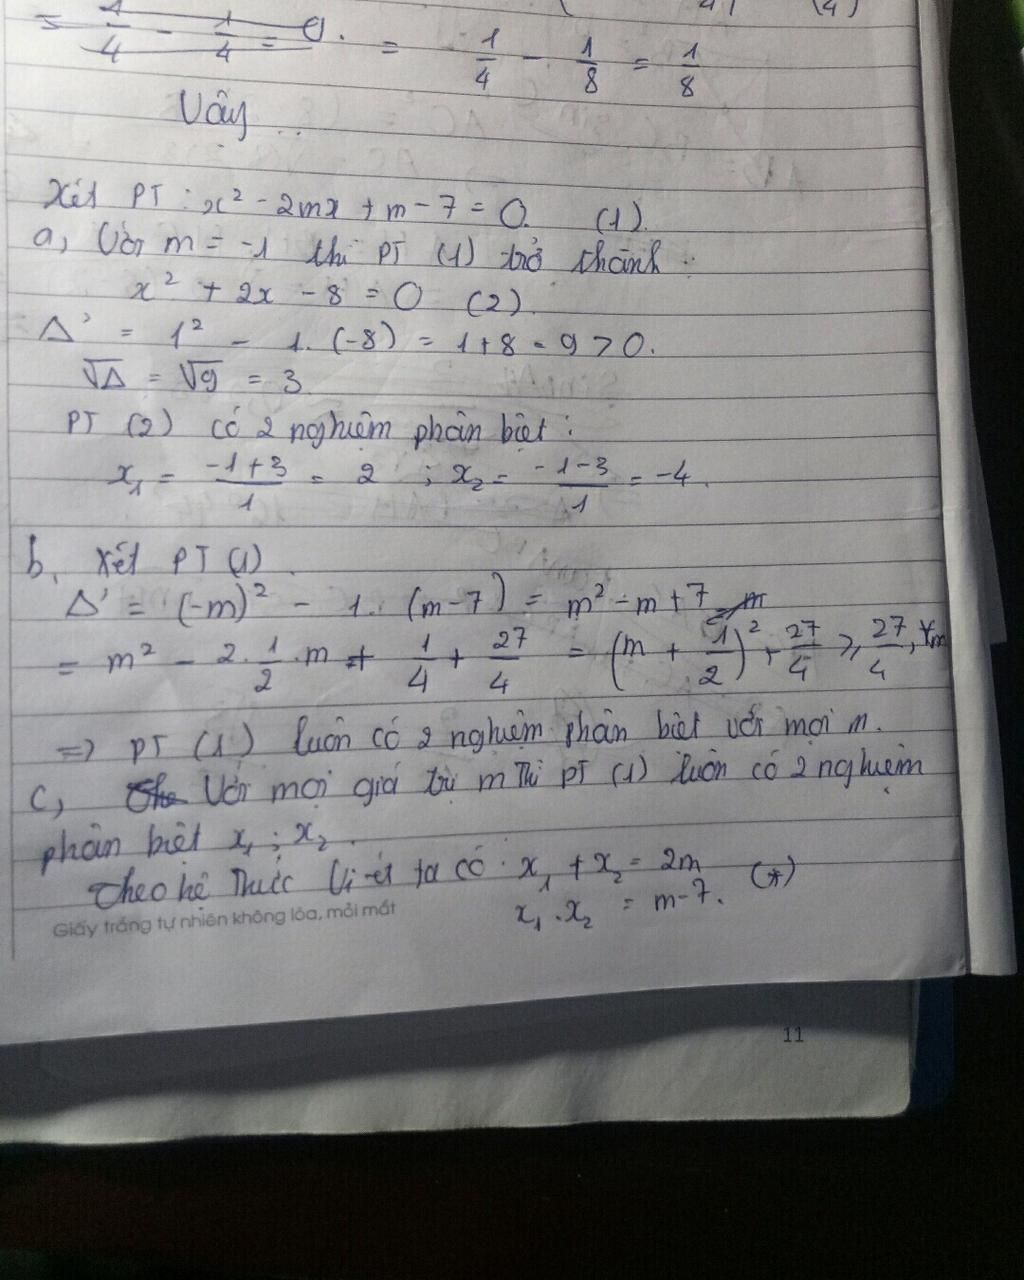 4) (4)
= 1/4 - 1/4 = 0. = 1/4 - 1/8 = 1/8
Vậy ...
Xét PT : x² - 2mx + m - 7 = 0. (1).
a, Với m = -1 thì PT (1) trở thành :
x² + 2x - 8 = 0 (2).
Δ' = 1² - 1. (-8) = 1 + 8 = 9 > 0.
√Δ = √9 = 3
PT (2) có 2 nghiệm phân biệt :
x₁ = (-1+3)/1 = 2 ; x₂ = (-1-3)/1 = -4.
b, Xét PT (1)
Δ' = (-m)² - 1. (m-7) = m² - m + 7
= m² - 2.1/2.m + 1/4 + 27/4 = (m + 1/2)² + 27/4 ≥ 27/4, ∀m
=> PT (1) luôn có 2 nghiệm phân biệt với mọi m.
c, Với mọi giá trị m thì PT (1) luôn có 2 nghiệm
phân biệt x₁ ; x₂.
Theo hệ thức Vi-ét ta có : x₁ + x₂ = 2m (*)
x₁ . x₂ = m-7.
Giấy trắng tự nhiên không lóa, mỏi mắt
11